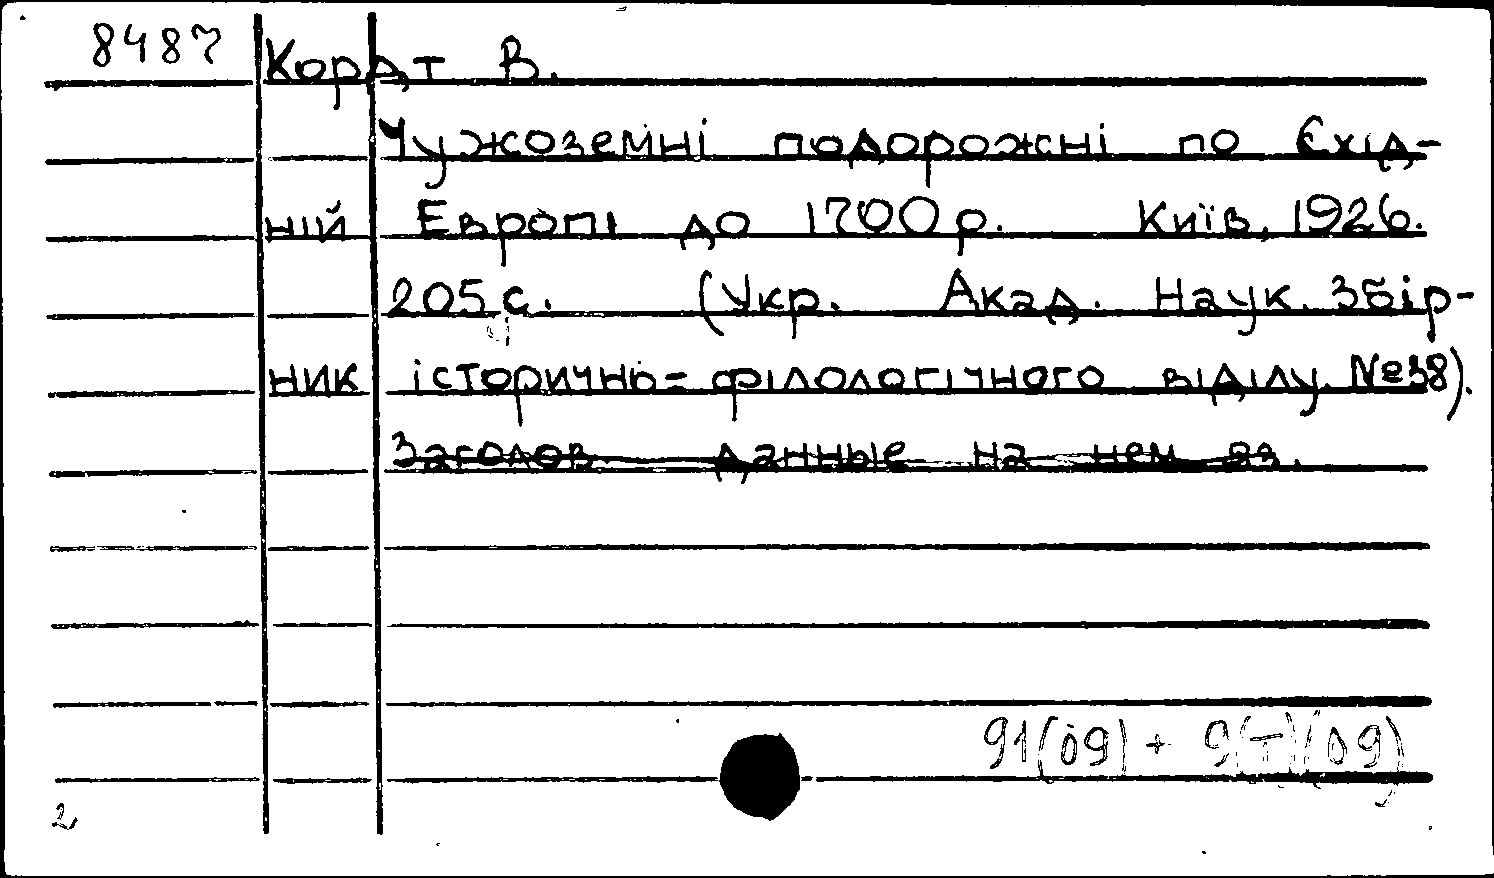 8487 Кордт В.
Чужоземні подорожні по Єхід-
ній Европі до 1700 р. Київ, 1926.
205 с. (Укр. Акад. Наук. Збір-
ник історично=філологічного віділу №38).
Заголов. данные на нем. яз.
91(09) + 9(Т)(09)
2